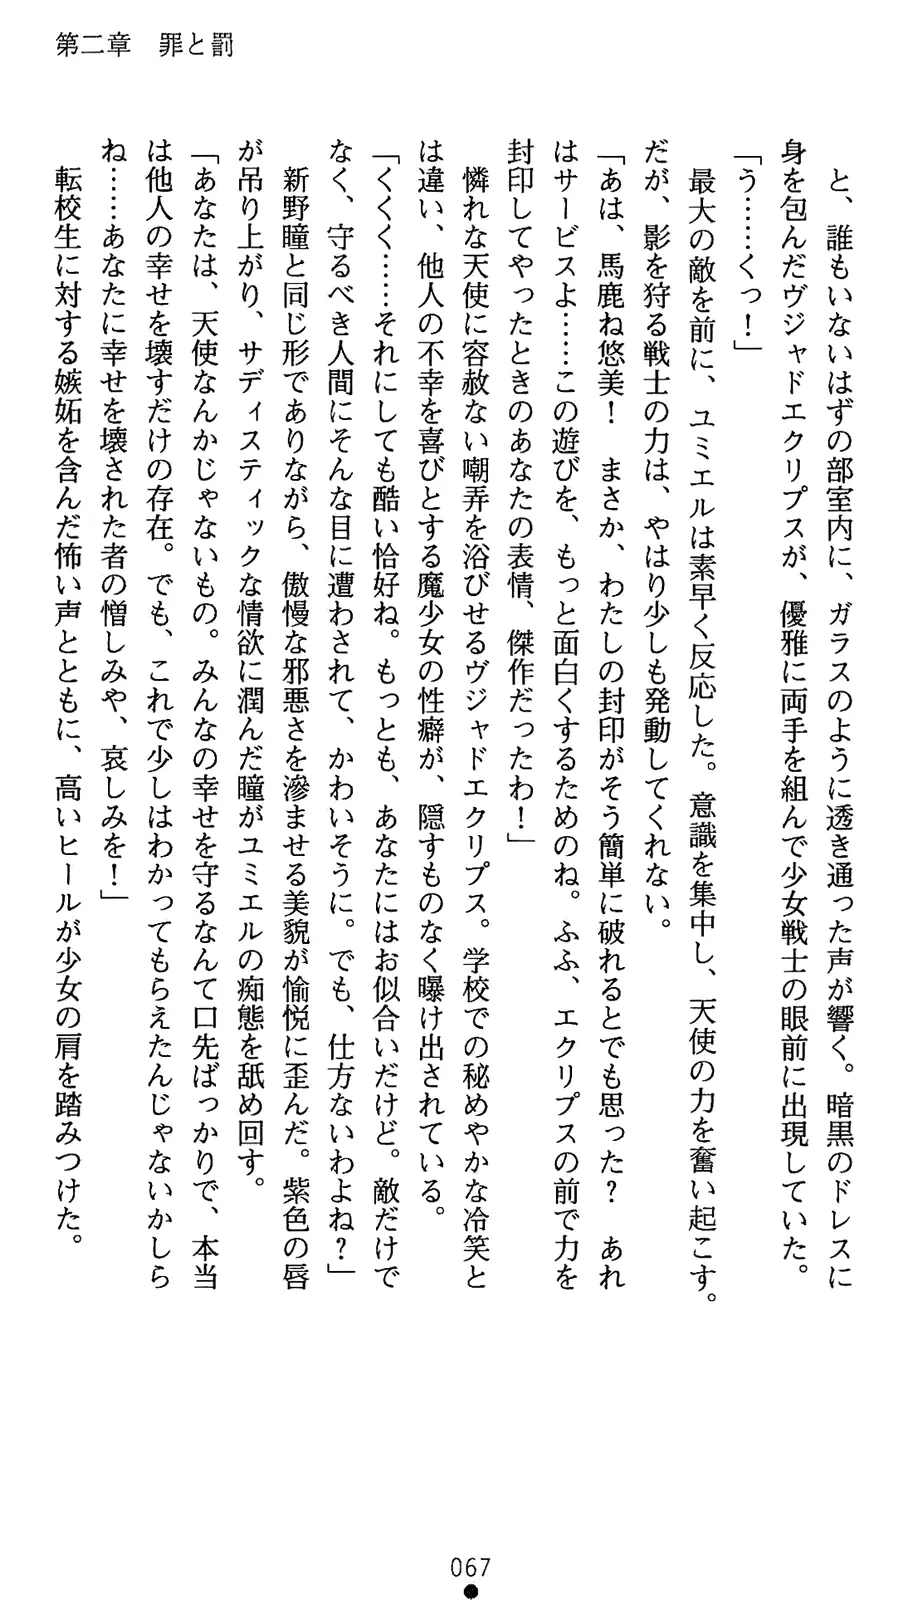 第二章　罪と罰
　と、誰もいないはずの部室内に、ガラスのように透き通った声が響く。暗黒のドレスに
身を包んだヴジャドエクリプスが、優雅に両手を組んで少女戦士の眼前に出現していた。
「う……くっ！」
　最大の敵を前に、ユミエルは素早く反応した。意識を集中し、天使の力を奮い起こす。
だが、影を狩る戦士の力は、やはり少しも発動してくれない。
「あは、馬鹿ね悠美！　まさか、わたしの封印がそう簡単に破れるとでも思った？　あれ
はサービスよ……この遊びを、もっと面白くするためのね。ふふ、エクリプスの前で力を
封印してやったときのあなたの表情、傑作だったわ！」
　憐れな天使に容赦ない嘲弄を浴びせるヴジャドエクリプス。学校での秘めやかな冷笑と
は違い、他人の不幸を喜びとする魔少女の性癖が、隠すものなく曝け出されている。
「くくく……それにしても酷い恰好ね。もっとも、あなたにはお似合いだけど。敵だけで
なく、守るべき人間にそんな目に遭わされて、かわいそうに。でも、仕方ないわよね？」
　新野瞳と同じ形でありながら、傲慢な邪悪さを滲ませる美貌が愉悦に歪んだ。紫色の唇
が吊り上がり、サディスティックな情欲に潤んだ瞳がユミエルの痴態を舐め回す。
「あなたは、天使なんかじゃないもの。みんなの幸せを守るなんて口先ばっかりで、本当
は他人の幸せを壊すだけの存在。でも、これで少しはわかってもらえたんじゃないかしら
ね……あなたに幸せを壊された者の憎しみや、哀しみを！」
　転校生に対する嫉妬を含んだ怖い声とともに、高いヒールが少女の肩を踏みつけた。
067